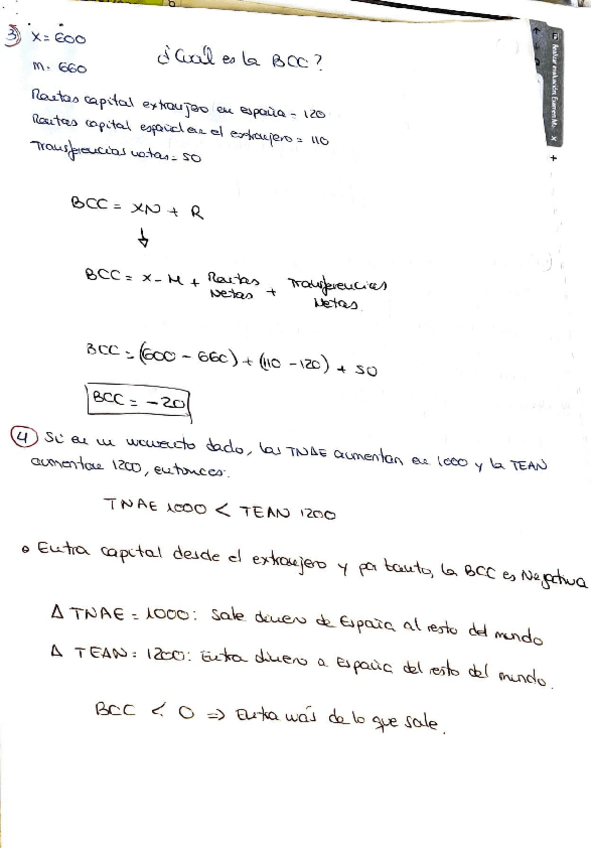 3) X = 600
¿Cuál es la BCC?
M. 660
Rentas capital extranjero en España = 120
Rentas capital español en el extranjero = 110
Transferencias netas = 50
BCC = XN + R
↓
BCC = X - M + Rentas Netas + Transferencias Netas
BCC = (600 - 660) + (110 - 120) + 50
BCC = -20
4) Si en un momento dado, las TNAE aumentan en 1000 y la TEAN
aumentan 1200, entonces:
TNAE 1000 < TEAN 1200
• Entra capital desde el extranjero y por tanto, la BCC es Negativa
Δ TNAE = 1000: Sale dinero de España al resto del mundo
Δ TEAN = 1200: Entra dinero a España del resto del mundo.
BCC < 0 ⇒ Entra más de lo que sale.
Realizar evaluación: Examen M. X
+